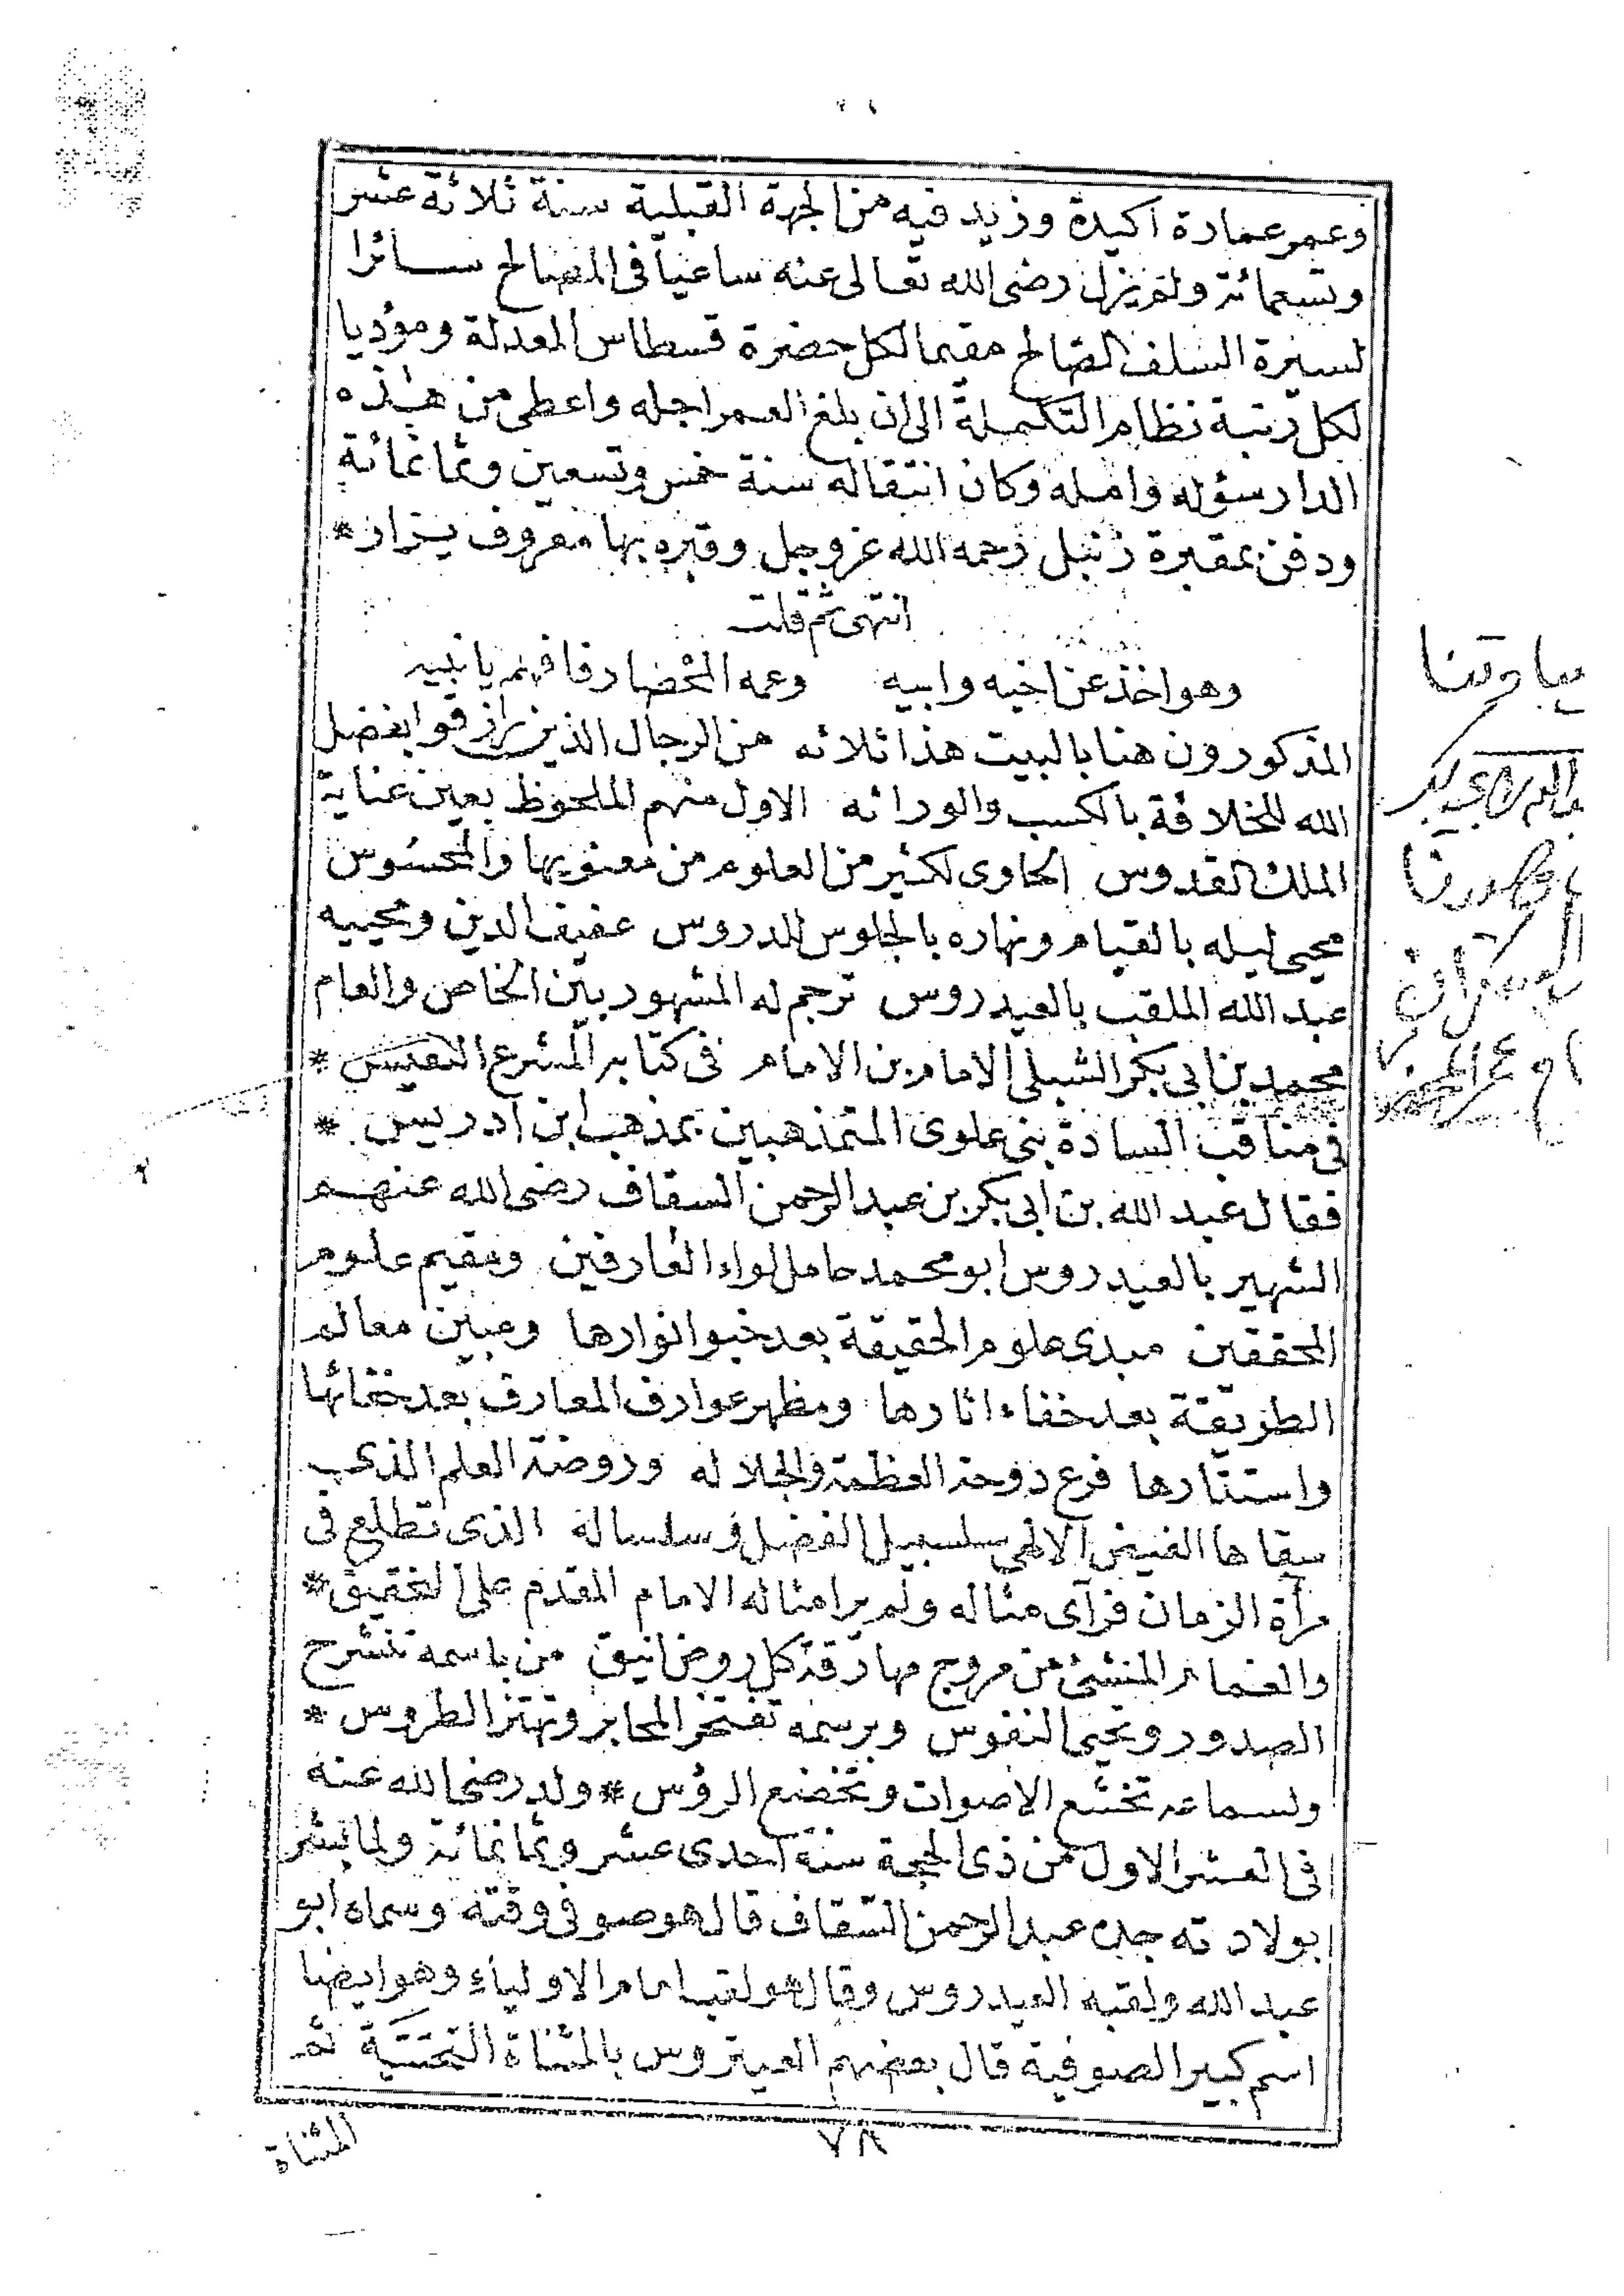 وعمر عمارة اكيدة وزيد فيه من الجهة القبلية سنة ثلاثة عشر
وتسعمائة ولم يزل رضى الله تعالى عنه ساعيا فى المصالح سائرا
لسيرة السلف الصالح مقيما لكل حضرة قسطاس المعدلة ومؤديا
لكل رتبة نظام التكملة الى ان بلغ العمر اجله واعطى من هذه
الدار سؤله وامله وكان انتقاله سنة خمس وتسعين وثمانمائة
ودفن بمقبرة زنبل رحمه الله عز وجل وقبره بها معروف يزار *
انتهى ثم قلت
وهو اخذ عن اخيه وابيه وعمه المحضار فافهم يا نبيه
المذكورون هنا بالبيت هذا ثلاثه من الرجال الذين رزقوا بفضل
الله للخلافة بالكسب والوراثه الاول منهم الملحوظ بعين عناية
الملك القدوس الحاوى لكثير من العلوم من معنويها والمحسوس
محيى ليله بالقيام ونهاره بالجلوس للدروس عفيف الدين ومحييه
عبد الله الملقب بالعيدروس ترجم له المشهور بين الخاص والعام
محمد بن ابى بكر الشبلى الامام بن الامام فى كتابه المشرع النفيس *
فى مناقب السادة بنى علوى المتمذهبين بمذهب ابن ادريس *
فقال عبد الله بن ابى بكر بن عبد الرحمن السقاف رضى الله عنهم
الشهير بالعيدروس ابو محمد حامل لواء العارفين ومقيم علوم
المحققين مبدى علوم الحقيقة بعد خبو انوارها ومبين معالم
الطريقة بعد خفاء اثارها ومظهر عوارف المعارف بعد خفائها
واستتارها فرع دوحة العظمة والجلاله وروضة العلم الذى
سقاها الفيض الالهى سلسبيل الفضل وسلساله الذى تطلع فى
مرآة الزمان فرآى مثاله ولم ير امثاله الامام المقدم على التحقيق *
والغمام المنشئ من مروج مهارقه كل روض انيق من باسمه تنشرح
الصدور وتحيى النفوس وبرسمه تفتخر المحابر وتهتز الطروس *
ولسماعه تخشع الاصوات وتخضع الرؤس * ولد رضى الله عنه
فى العشر الاول من ذى الحجة سنة احدى عشر وثمانمائة ولما بشر
بولادته جده عبد الرحمن السقاف قال هو صوفى وقته وسماه ابو
عبد الله ولقبه العيدروس وقال هو لقب امام الاولياء وهو ايضا
اسم كبير الصوفية قال بعضهم العيتروس بالمثناة التحتية ثم
المثناة
٧٨